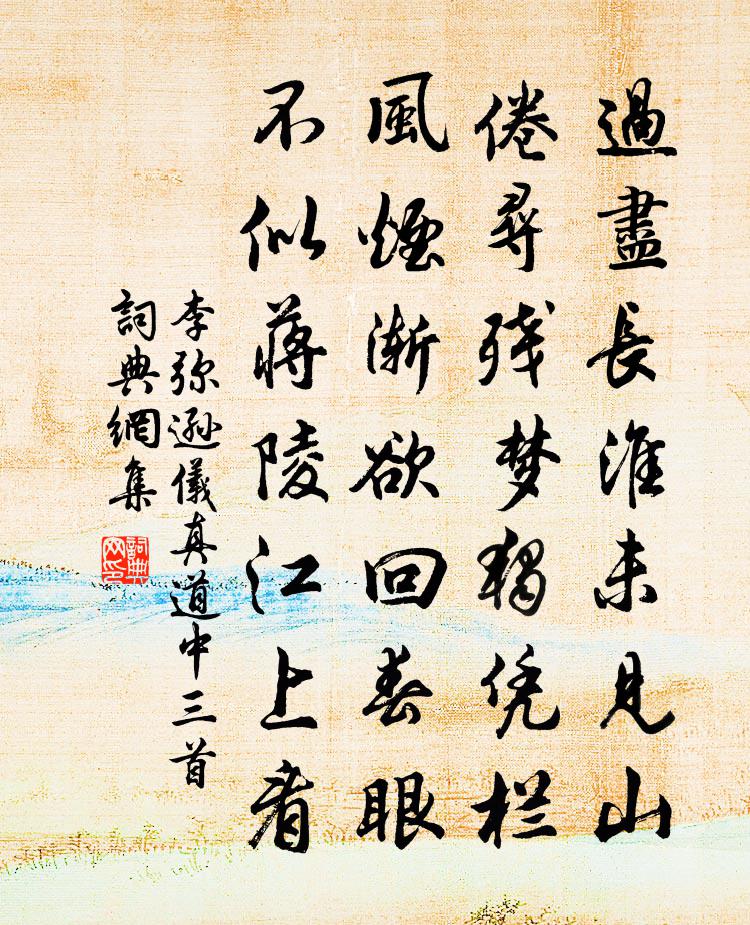 過盡長淮未見山
倦尋残梦獨凭栏
風煙渐欲回春眼
不似蒋陵江上看
李弥遜儀真道中三首
詞典網集
詞典网印